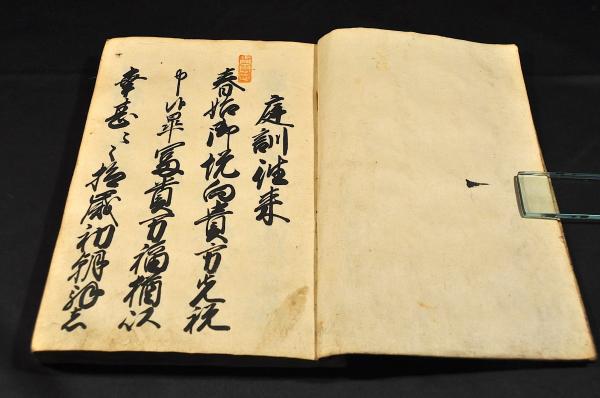 庭訓往来
春始御悦向貴方先祝
申候畢富貴万福猶以
幸甚〻〻抑歳初朝拝者